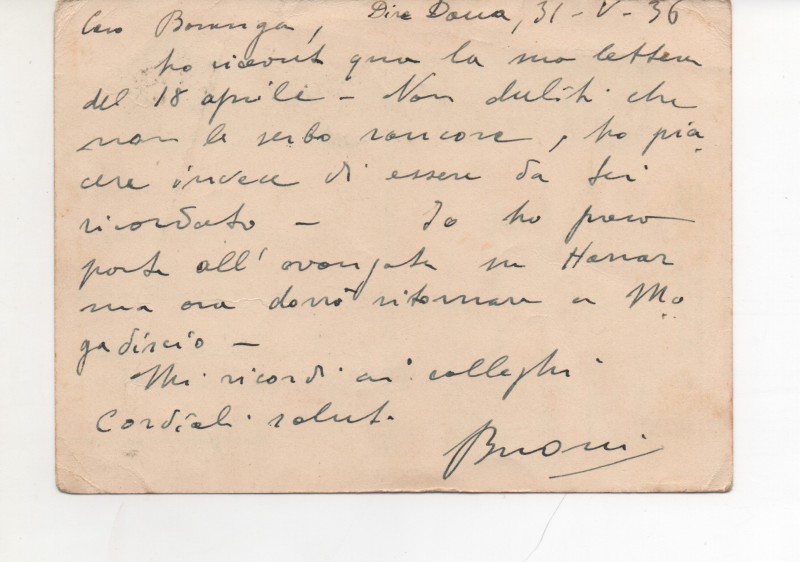 Caro Boranga, Dire Daua, 31-V-36
ho ricevut qua la sua lettera
del 18 aprile - Non dubiti che
non le serbo rancore, ho pia
cere invece di essere da Lei
ricordato - Io ho preso
parte all'avanzata su Harrar
ma ora dovrò ritornare a Mo
gadiscio -
Mi ricordi ai colleghi
Cordiali saluti
Buoni